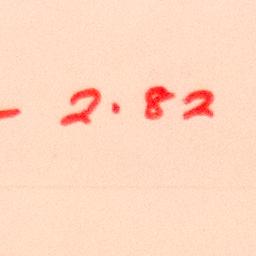 - 2.82